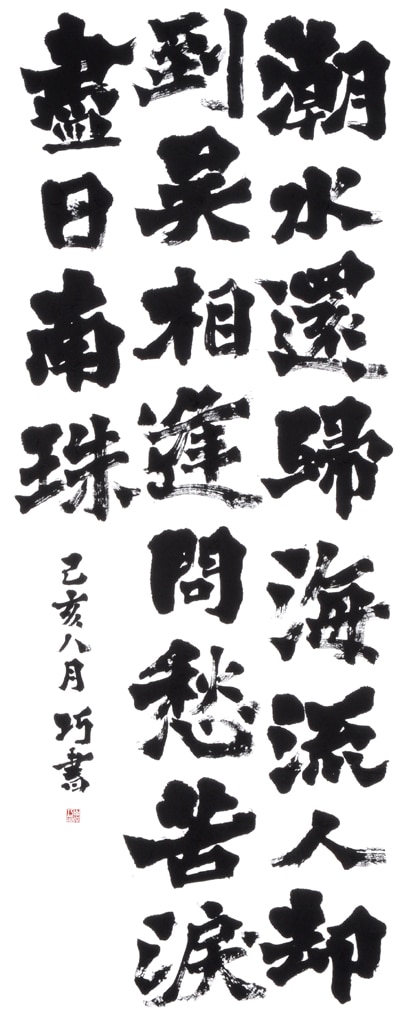 潮水還歸海流人却
到吳相逢問愁苦淚
盡日南珠
己亥八月巧書